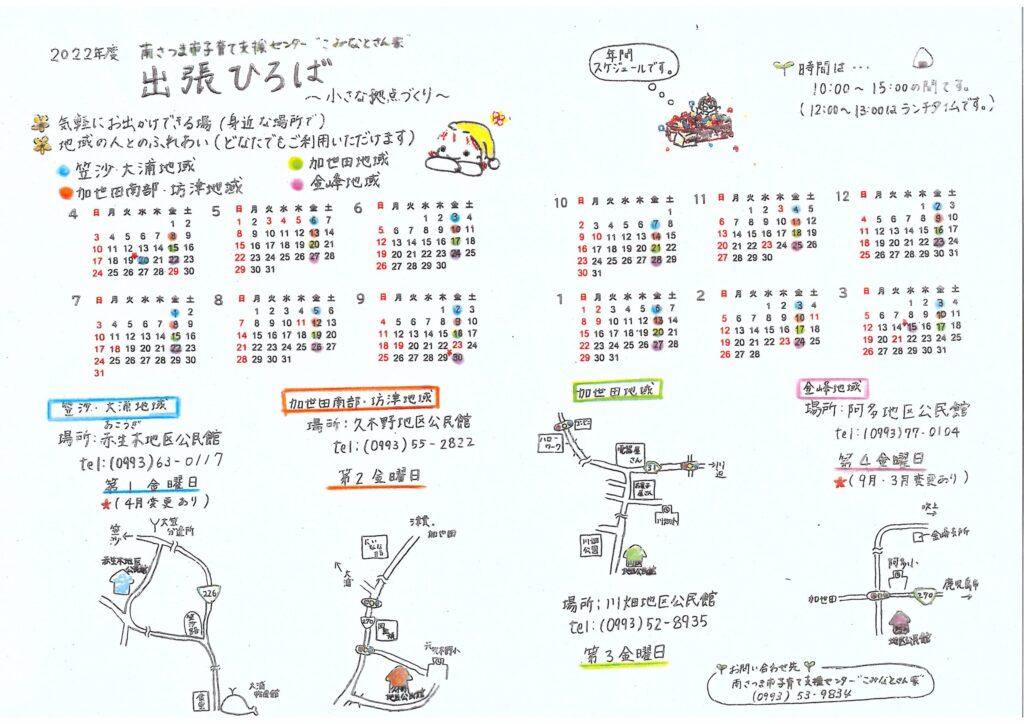 2022年度 南さつま市子育て支援センター"こみなとさん家"
出張ひろば
～小さな拠点づくり～
気軽にお出かけできる場(身近な場所で)
地域の人とのふれあい(どなたでもご利用いただけます)
笠沙・大浦地域
加世田地域
加世田南部・坊津地域
金峰地域
年間
スケジュールです。
時間は…
10:00～15:00の間です。
(12:00～13:00はランチタイムです。)
4 日 月 火 水 木 金 土
1 2
3 4 5 6 7 8 9
10 11 12 13 14 15 16
17 18 19 20 21 22 23
24 25 26 27 28 29 30
5 日 月 火 水 木 金 土
1 2 3 4 5 6 7
8 9 10 11 12 13 14
15 16 17 18 19 20 21
22 23 24 25 26 27 28
29 30 31
6 日 月 火 水 木 金 土
1 2 3 4
5 6 7 8 9 10 11
12 13 14 15 16 17 18
19 20 21 22 23 24 25
26 27 28 29 30
7 日 月 火 水 木 金 土
1 2
3 4 5 6 7 8 9
10 11 12 13 14 15 16
17 18 19 20 21 22 23
24 25 26 27 28 29 30
31
8 日 月 火 水 木 金 土
1 2 3 4 5 6
7 8 9 10 11 12 13
14 15 16 17 18 19 20
21 22 23 24 25 26 27
28 29 30 31
9 日 月 火 水 木 金 土
1 2 3
4 5 6 7 8 9 10
11 12 13 14 15 16 17
18 19 20 21 22 23 24
25 26 27 28 29 30
10 日 月 火 水 木 金 土
1
2 3 4 5 6 7 8
9 10 11 12 13 14 15
16 17 18 19 20 21 22
23 24 25 26 27 28 29
30 31
11 日 月 火 水 木 金 土
1 2 3 4 5
6 7 8 9 10 11 12
13 14 15 16 17 18 19
20 21 22 23 24 25 26
27 28 29 30
12 日 月 火 水 木 金 土
1 2 3
4 5 6 7 8 9 10
11 12 13 14 15 16 17
18 19 20 21 22 23 24
25 26 27 28 29 30 31
1 日 月 火 水 木 金 土
1 2 3 4 5 6 7
8 9 10 11 12 13 14
15 16 17 18 19 20 21
22 23 24 25 26 27 28
29 30 31
2 日 月 火 水 木 金 土
1 2 3 4
5 6 7 8 9 10 11
12 13 14 15 16 17 18
19 20 21 22 23 24 25
26 27 28
3 日 月 火 水 木 金 土
1 2 3 4
5 6 7 8 9 10 11
12 13 14 15 16 17 18
19 20 21 22 23 24 25
26 27 28 29 30 31
笠沙・大浦地域
あこうぎ
場所:赤生木地区公民館
tel:(0993)63-0117
第1金曜日
★(4月変更あり)
笠沙
大笠
分遣所
赤生木地区
公民館
226
大浦
加世田南部・坊津地域
場所:久木野地区公民館
tel:(0993)55-2822
第2金曜日
津貫
加世田
大浦
270
地区公民館
加世田地域
ハロー
ワーク
電器屋
さん
お菓子
屋さん
川畑小
川畑
公園
地区公民館
場所:川畑地区公民館
tel:(0993)52-8935
第3金曜日
金峰地域
場所:阿多地区公民館
tel:(0993)77-0104
第4金曜日
★(9月・3月変更あり)
吹上
金峰支所
阿多小
加世田
鹿児島市
270
地区公民館
お問い合わせ先
南さつま市子育て支援センター"こみなとさん家"
(0993)53-9834